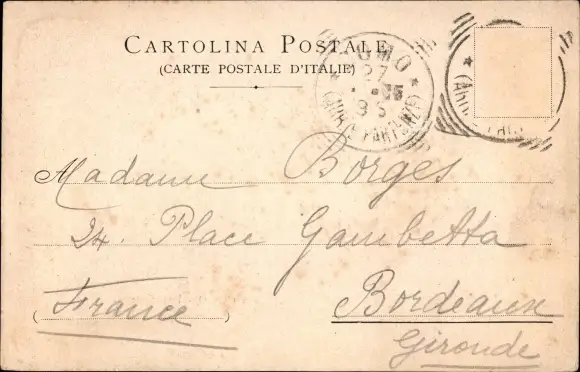 CARTOLINA POSTALE
(CARTE POSTALE D'ITALIE)
OMO
27
95
Madame Borges
24. Place Gambetta
(France)
Bordeaux
Gironde